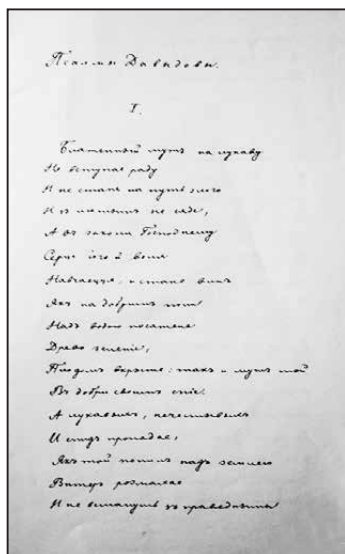 Псалми Давидови.
I.
Блаженный мужъ на лукаву
Не вступае раду
И не стане на путь злого
И зъ лютимъ не сяде,
А въ закони Господнему
Серце його й воля
Навчаецця, и стане винъ
Якъ на добримъ поли
Надъ водою посажене
Древо зеленіе,
Плодомъ вкрите: такъ и мужъ той
Въ добри своимъ спіе.
А лукавыхъ, нечестивыхъ
И слидъ пропадае,
Якъ той попилъ надъ землею
Витеръ розмахае
И не встануть зъ праведными